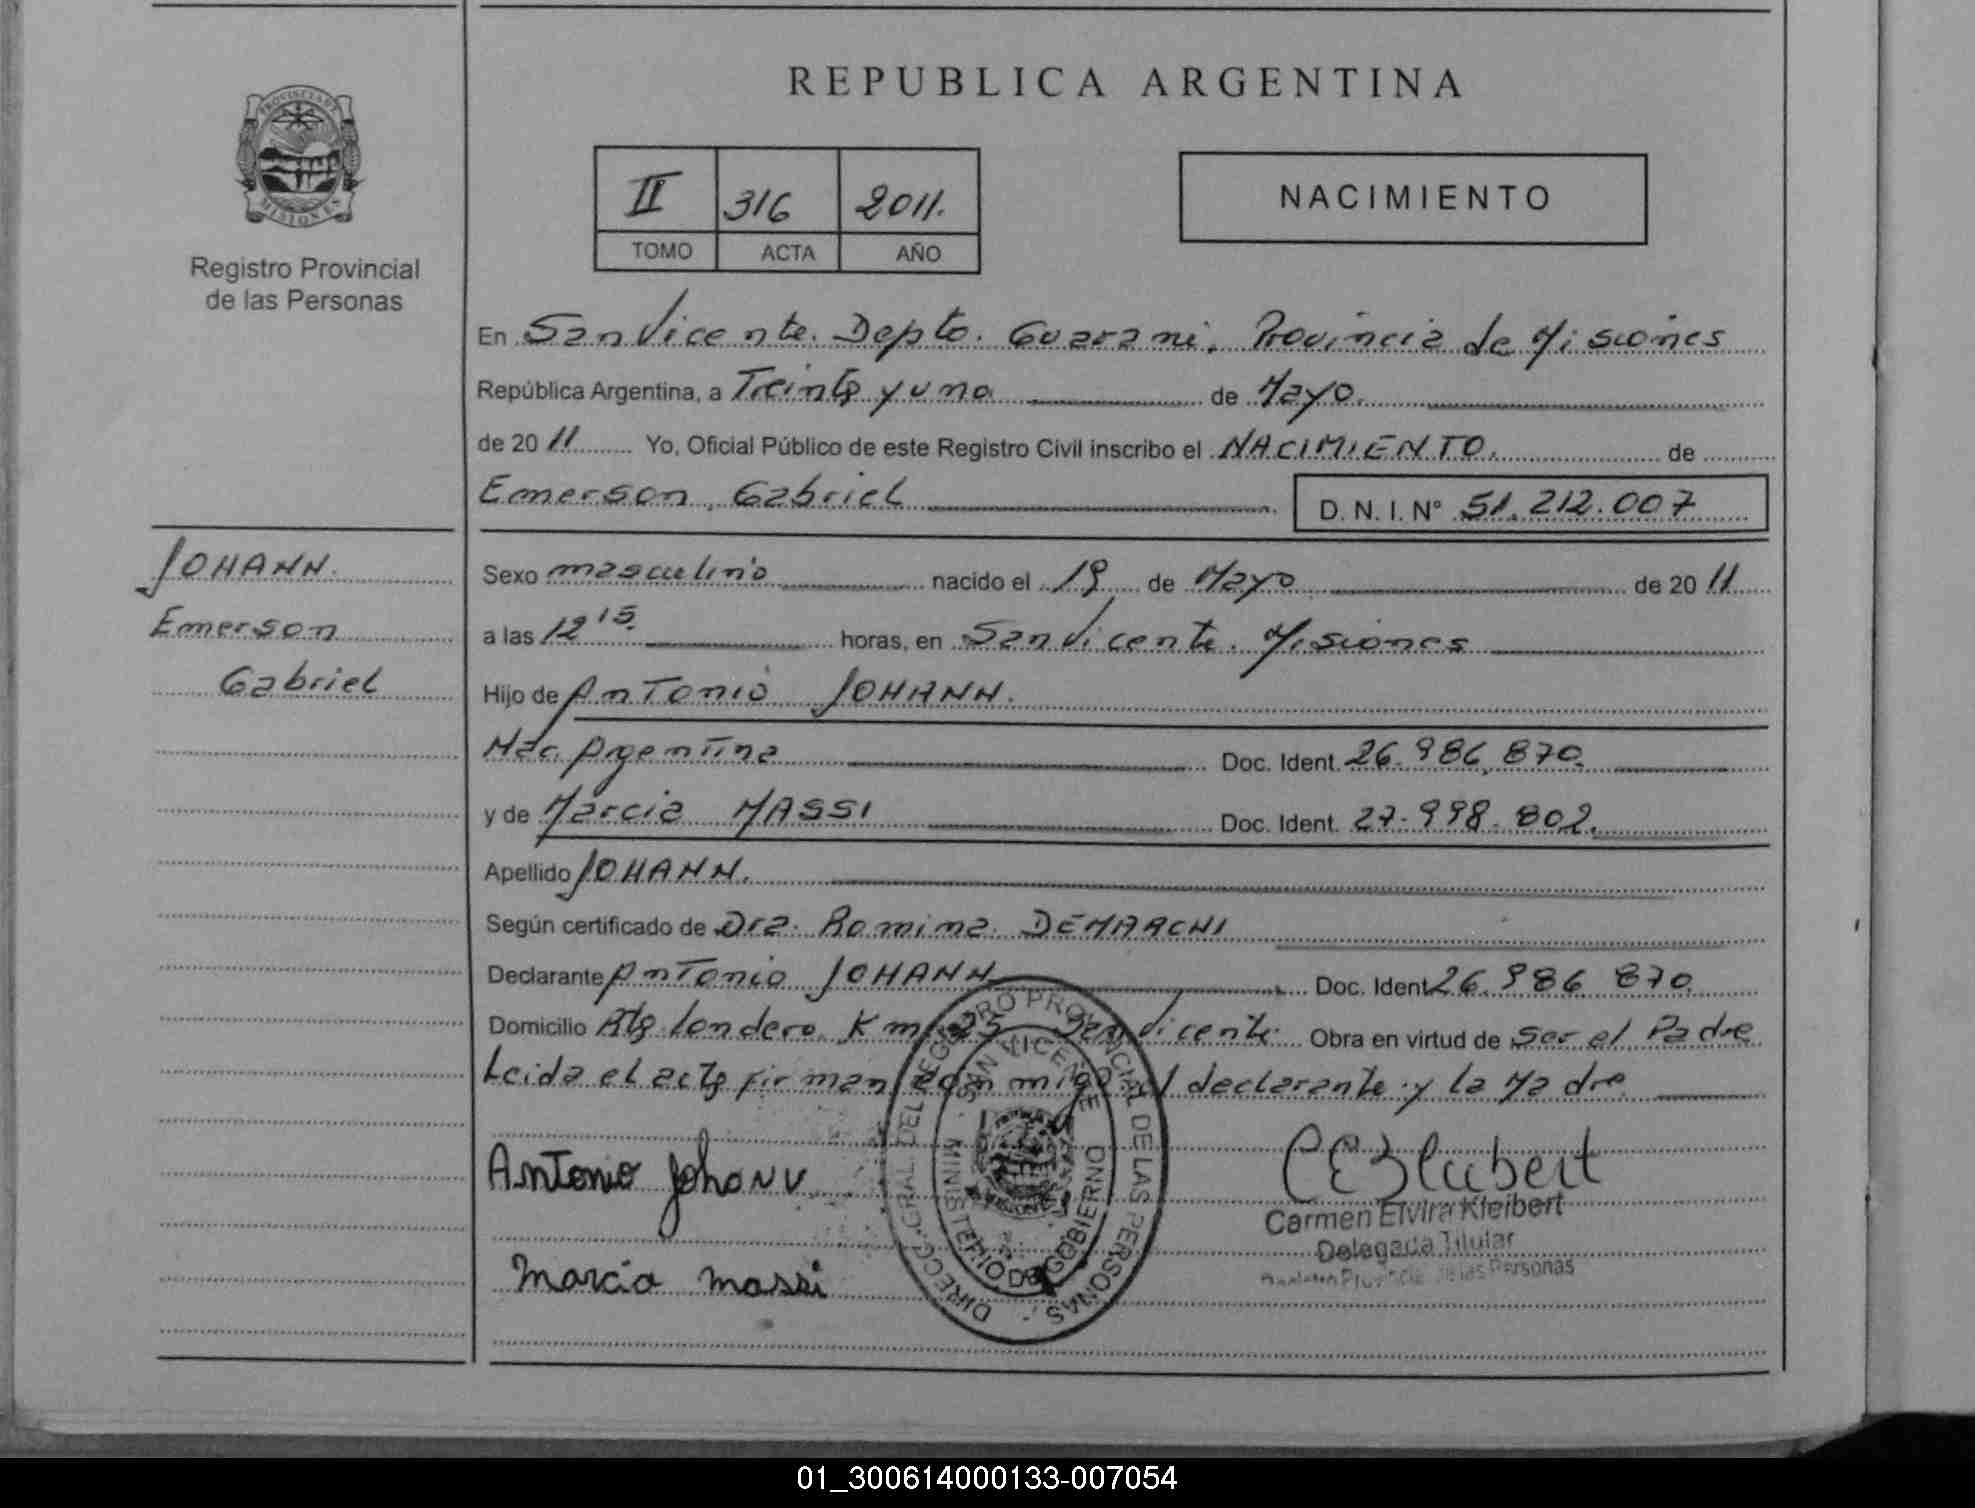 REPUBLICA ARGENTINA
PROVINCIA DE
MISIONES
Registro Provincial
de las Personas
II 316 2011.
TOMO ACTA AÑO
NACIMIENTO
En San Vicente. Depto. Guarani. Provincia de Misiones
República Argentina, a Treinta y uno de Mayo.
de 20 11 Yo, Oficial Público de este Registro Civil inscribo el NACIMIENTO. de
Emerson Gabriel D. N. I. N° 51.212.007
JOHANN.
Emerson
Gabriel
Sexo masculino nacido el 19 de Mayo de 20 11
a las 12 15. horas, en San Vicente. Misiones
Hijo de Antonio JOHANN.
Nac. Argentina Doc. Ident. 26.986.870.
y de Marcia MASSI Doc. Ident. 27.998.802.
Apellido JOHANN.
Según certificado de Dra. Romina DEMARCHI
Declarante Antonio JOHANN Doc. Ident 26.986 870
Domicilio Alta Londero Km San Vicente. Obra en virtud de Ser el Padre
Leida el acta firman conmigo el declarante y la Madre
Antonio Johann
Marcia Massi
DIRECC. GRAL DEL REGISTRO PROVINCIAL DE LAS PERSONAS
SAN VICENTE
MINISTERIO DE GOBIERNO
Carmen Elvira Kleibert
Delegada Titular
Registro Provincial de las Personas
01_300614000133-007054